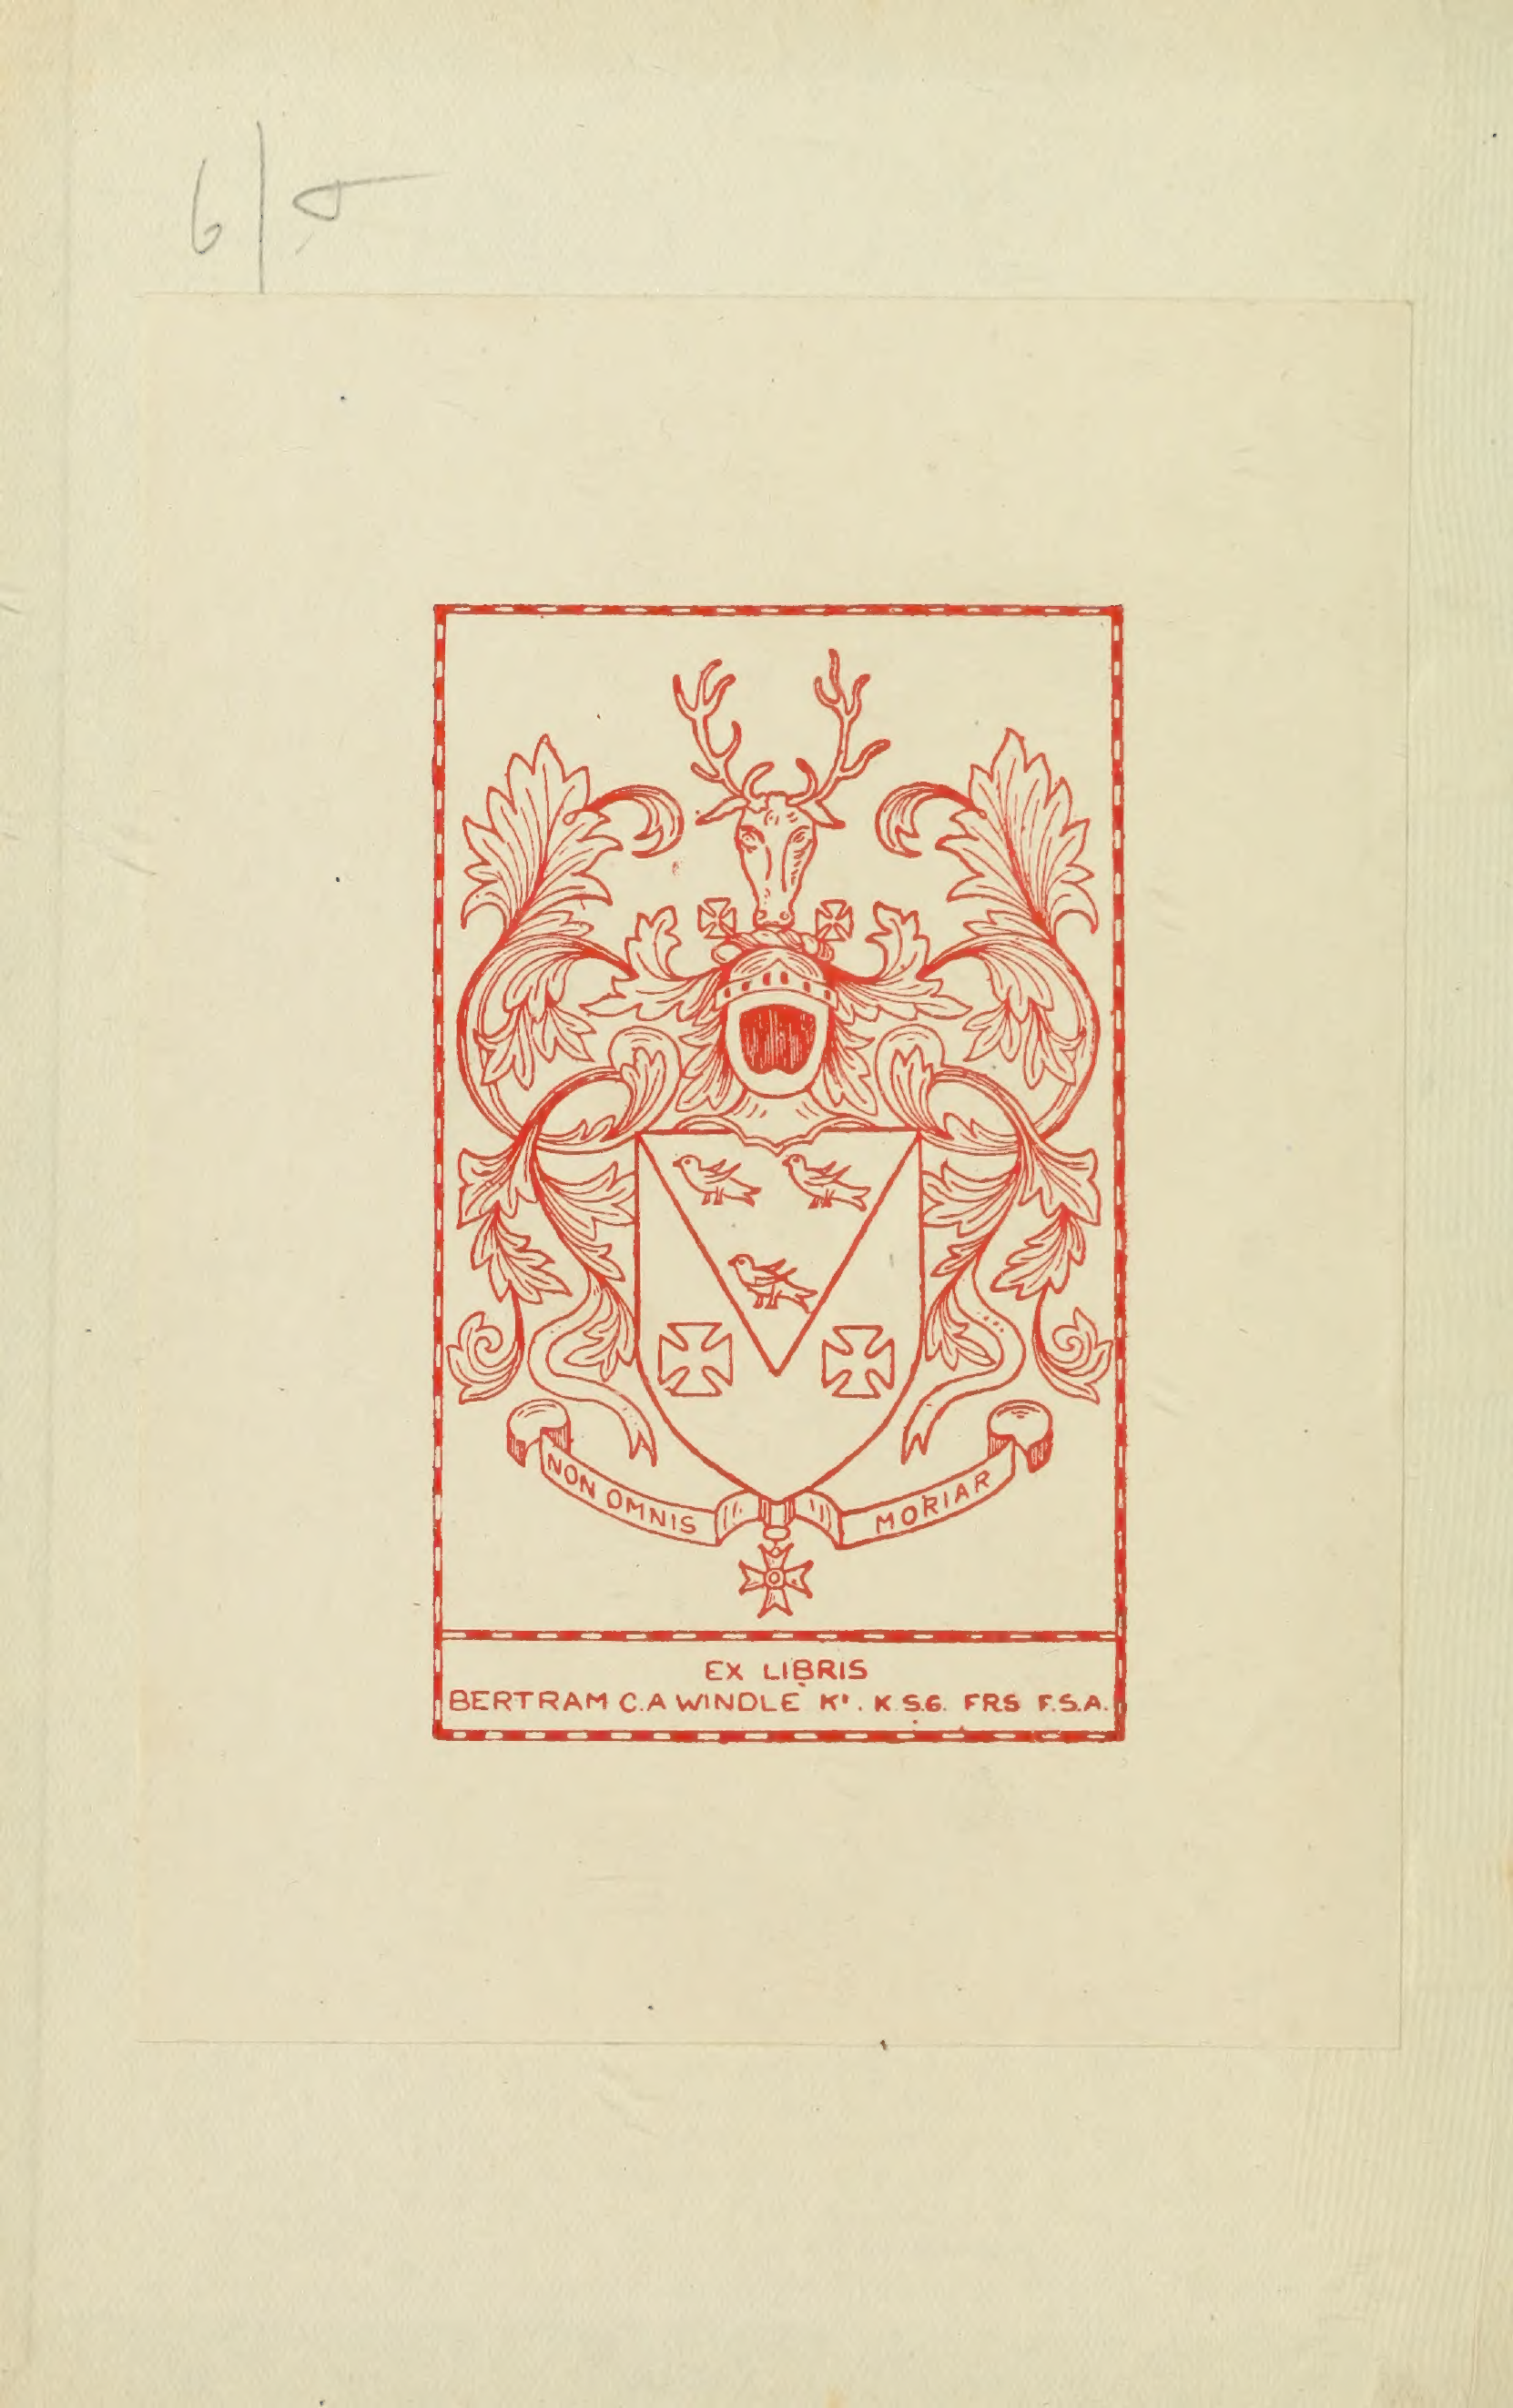 6/-
NON OMNIS MORIAR
EX LIBRIS
BERTRAM C.A WINDLE Kt. K.S.G. FRS F.S.A.